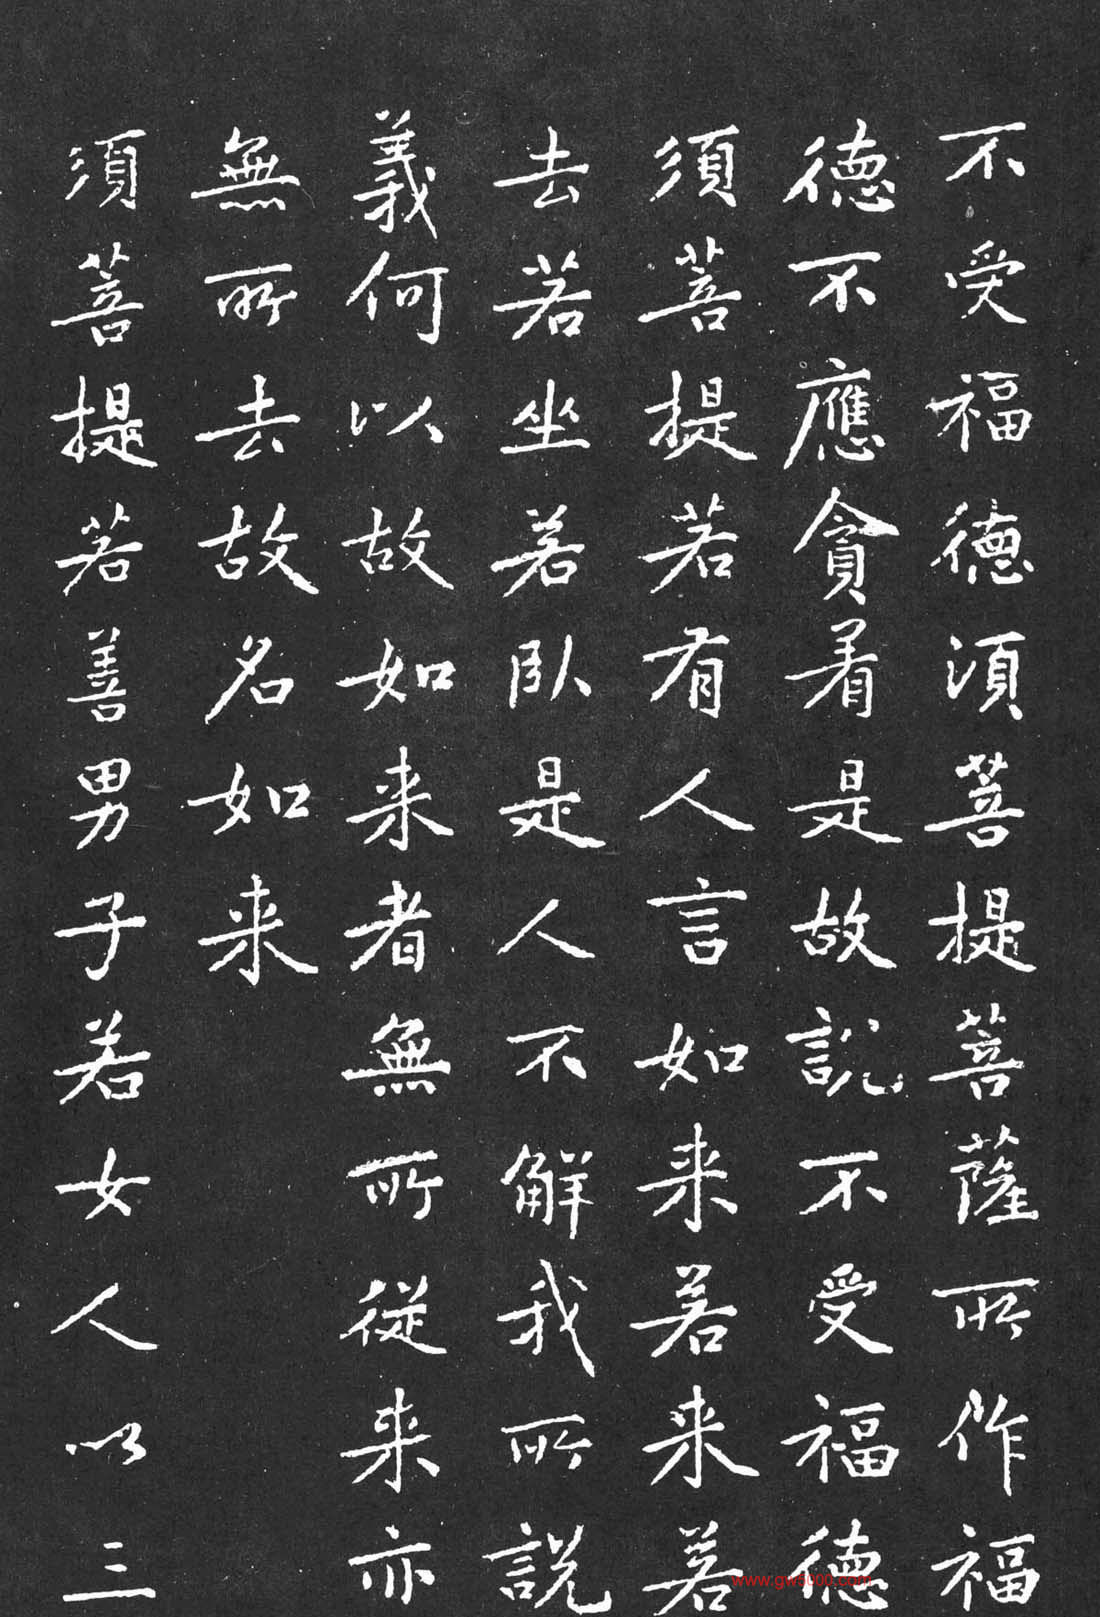 不受福德須菩提菩薩所作福
德不應貪着是故說不受福德
須菩提若有人言如来若来若
去若坐若臥是人不解我所說
義何以故如来者無所從来亦
無所去故名如来
須菩提若善男子若女人以三
www.gw5000.com